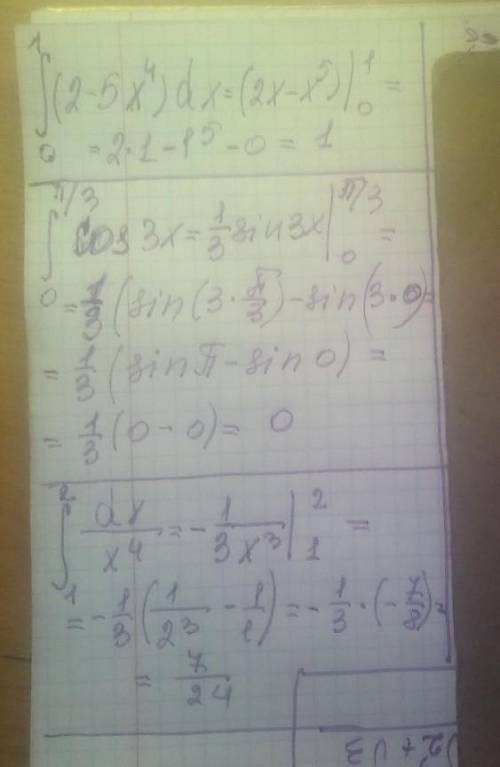 ∫₀¹ (2-5x⁴) dx = (2x-x⁵) |₀¹ =
= 2·1-1⁵-0 = 1
∫₀^π/3 cos 3x = 1/3 sin 3x |₀^π/3 =
= 1/3 (sin (3·π/3) - sin (3·0) =
= 1/3 (sin π - sin 0) =
= 1/3 (0-0) = 0
∫₁² dx/x⁴ = - 1/3x³ |₁² =
= - 1/3 (1/2³ - 1/1) = - 1/3 · (- 7/8) =
= 7/24